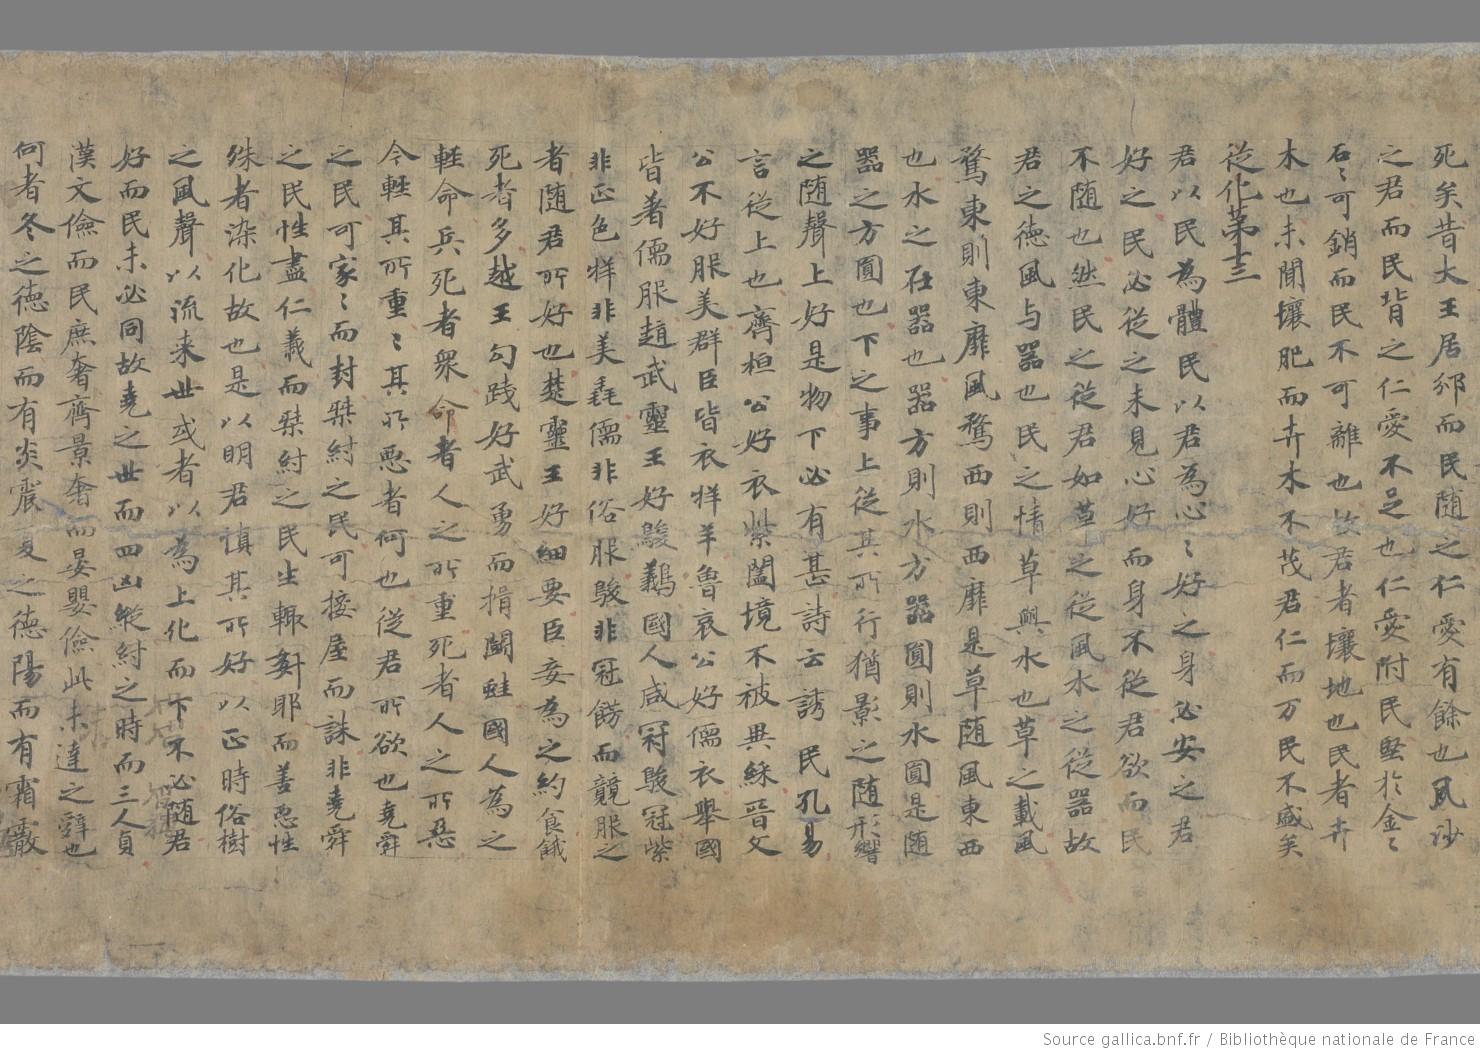 死矣昔大王居邠而民随之仁愛有餘也夙沙
之君而民背之仁愛不足也仁愛附民堅扵金〻
石〻可銷而民不可離也故君者壤地也民者卉
木也未聞壤肥而卉木不茂君仁而万民不盛矣
従化第十三
君以民為體民以君為心〻好之身必安之君
好之民必從之未見心好而身不從君欲而民
不随也然民之從君如草之從風水之從器故
君之徳風与器也民之情草與水也草之載風
鶩東則東靡風鶩西則西靡是草随風東西
也水之在器也器方則水方器圓則水圓是随
器之方圓也下之事上從其所行猶影之随形響
之随聲上好是物下必有甚詩云誘民孔易
言從上也齊桓公好衣紫闔境不被異綵晉文
公不好服美群臣皆衣牂羊魯哀公好儒衣舉國
皆著儒服趙武靈王好鵔鸃國人咸冠鵔冠紫
非正色牂非美毳儒非俗服鵔非冠餝而競服之
者随君所好也楚靈王好細要臣妾為之約食餓
死者多越王勾踐好武勇而揖鬪蛙國人為之
輕命兵死者衆命者人之所重死者人之所惡
今輕其所重〻其所惡者何也從君所欲也堯舜
之民可家〻而封桀紂之民可接屋而誅非堯舜
之民性盡仁義而桀紂之民生輙䣛耶而善惡性
殊者染化故也是以明君慎其所好以正時俗樹
之風聲以流来世或者以為上化而下不必随君
好而民未必同故堯之世而四凶縱紂之時而三人貞
漢文儉而民庶奢齊景奢而晏嬰儉此未達之辭也
何者冬之徳陰而有炎震夏之徳陽而有霜霰
Source gallica.bnf.fr / Bibliothèque nationale de France